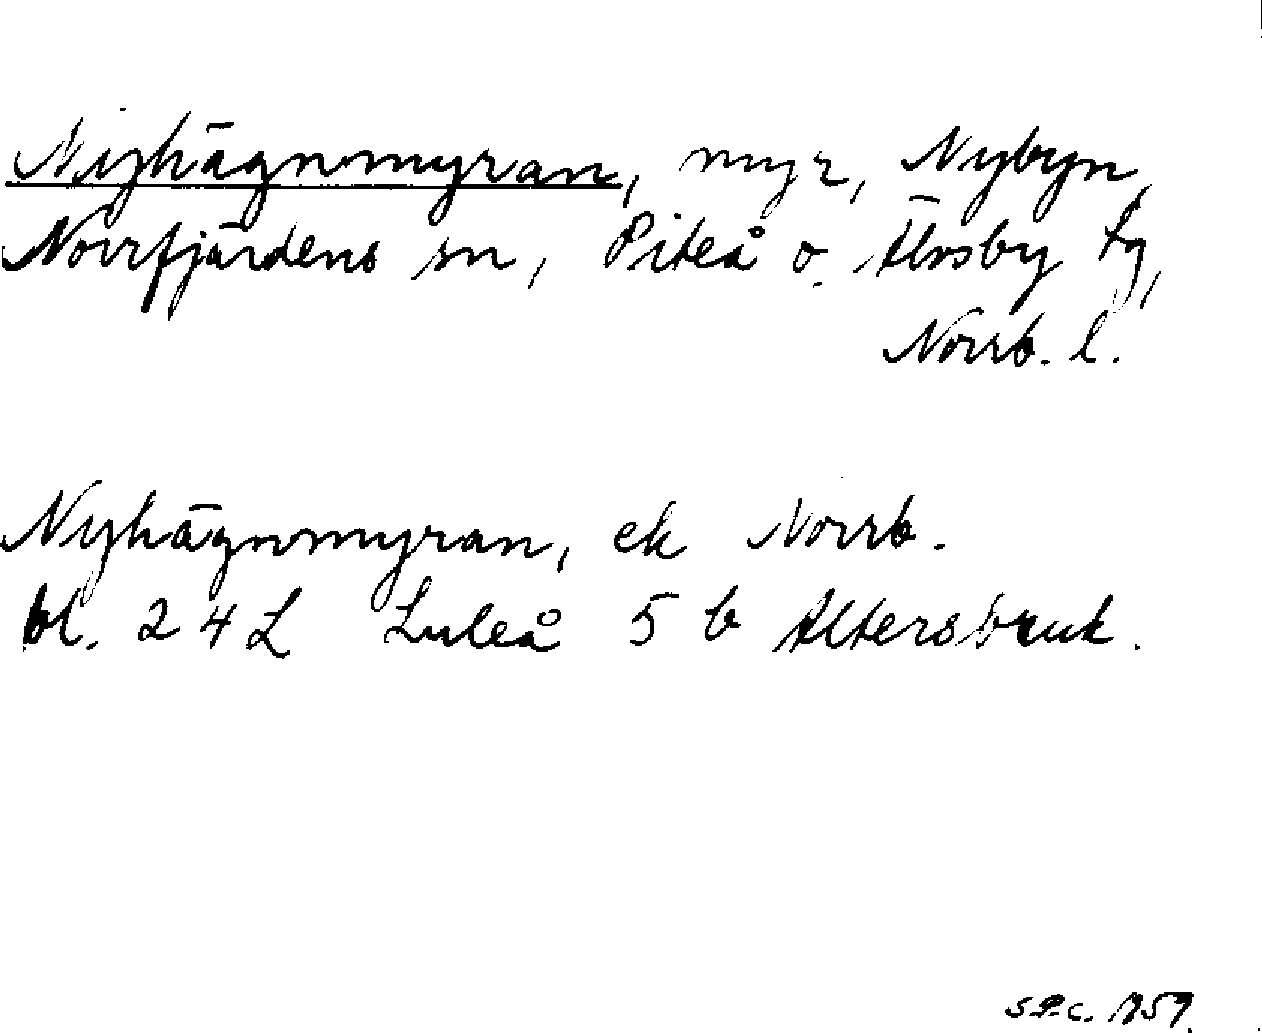 Nyhägnmyran, myr, Nybyn,
Norrfjärdens sn, Piteå o. Älvsby tg,
Norrb. l.
Nyhägnmyran, ek Norrb.
bl. 24L Luleå 5 b Altersbruk.
S.P.C. 1959.